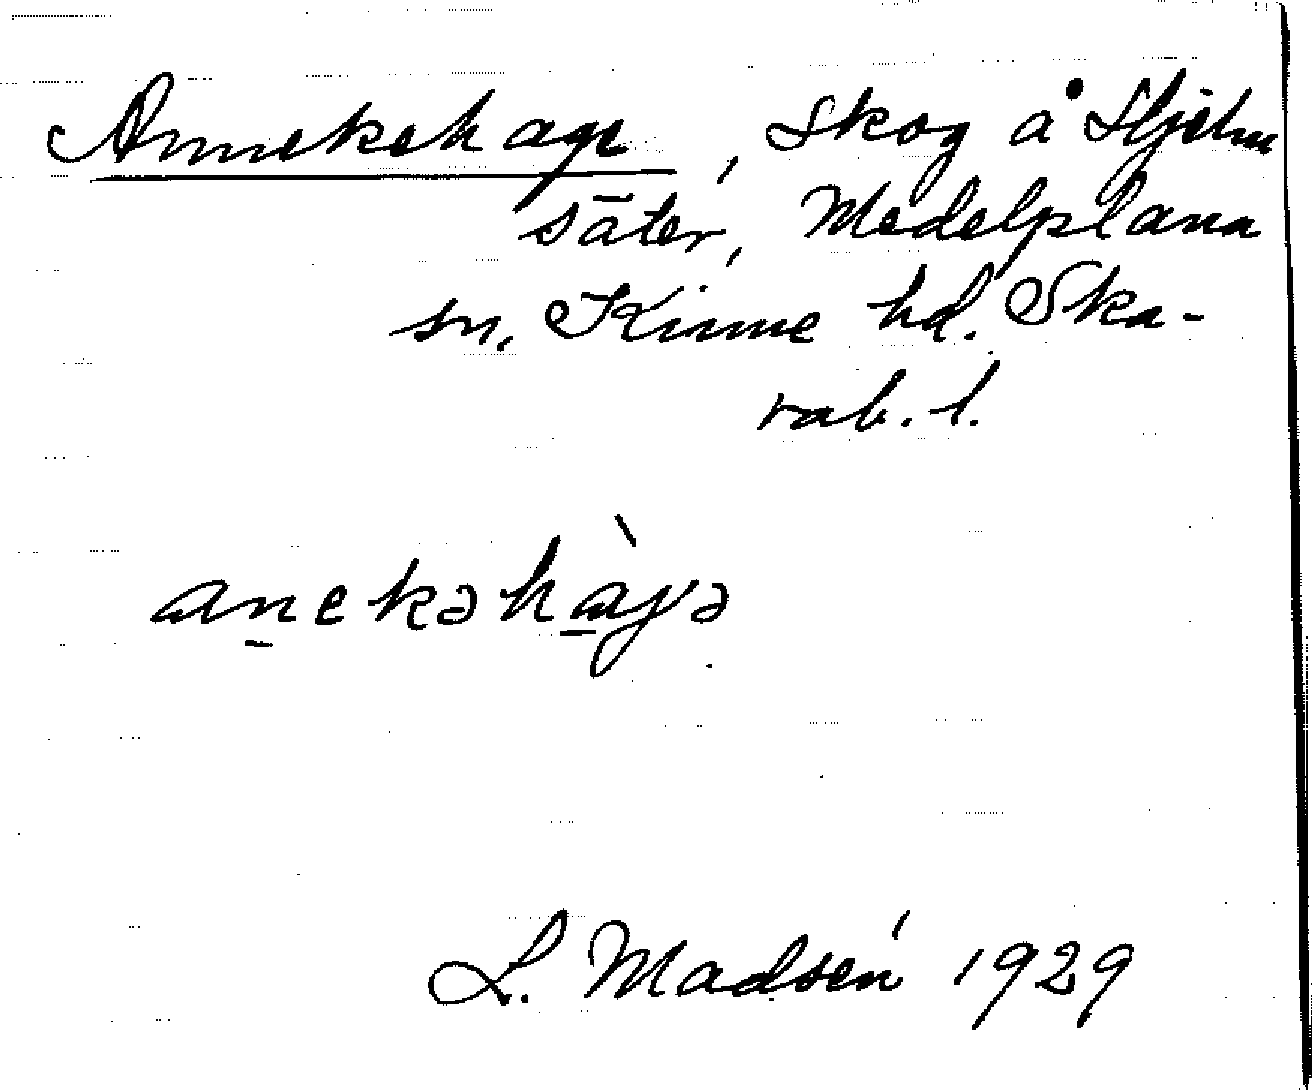 Annekehage, Skog å Hjelm
säter, Medelplana
sn, Kinne hd. Ska-
rab. l.
anekəhàgə
L. Madsén 1929